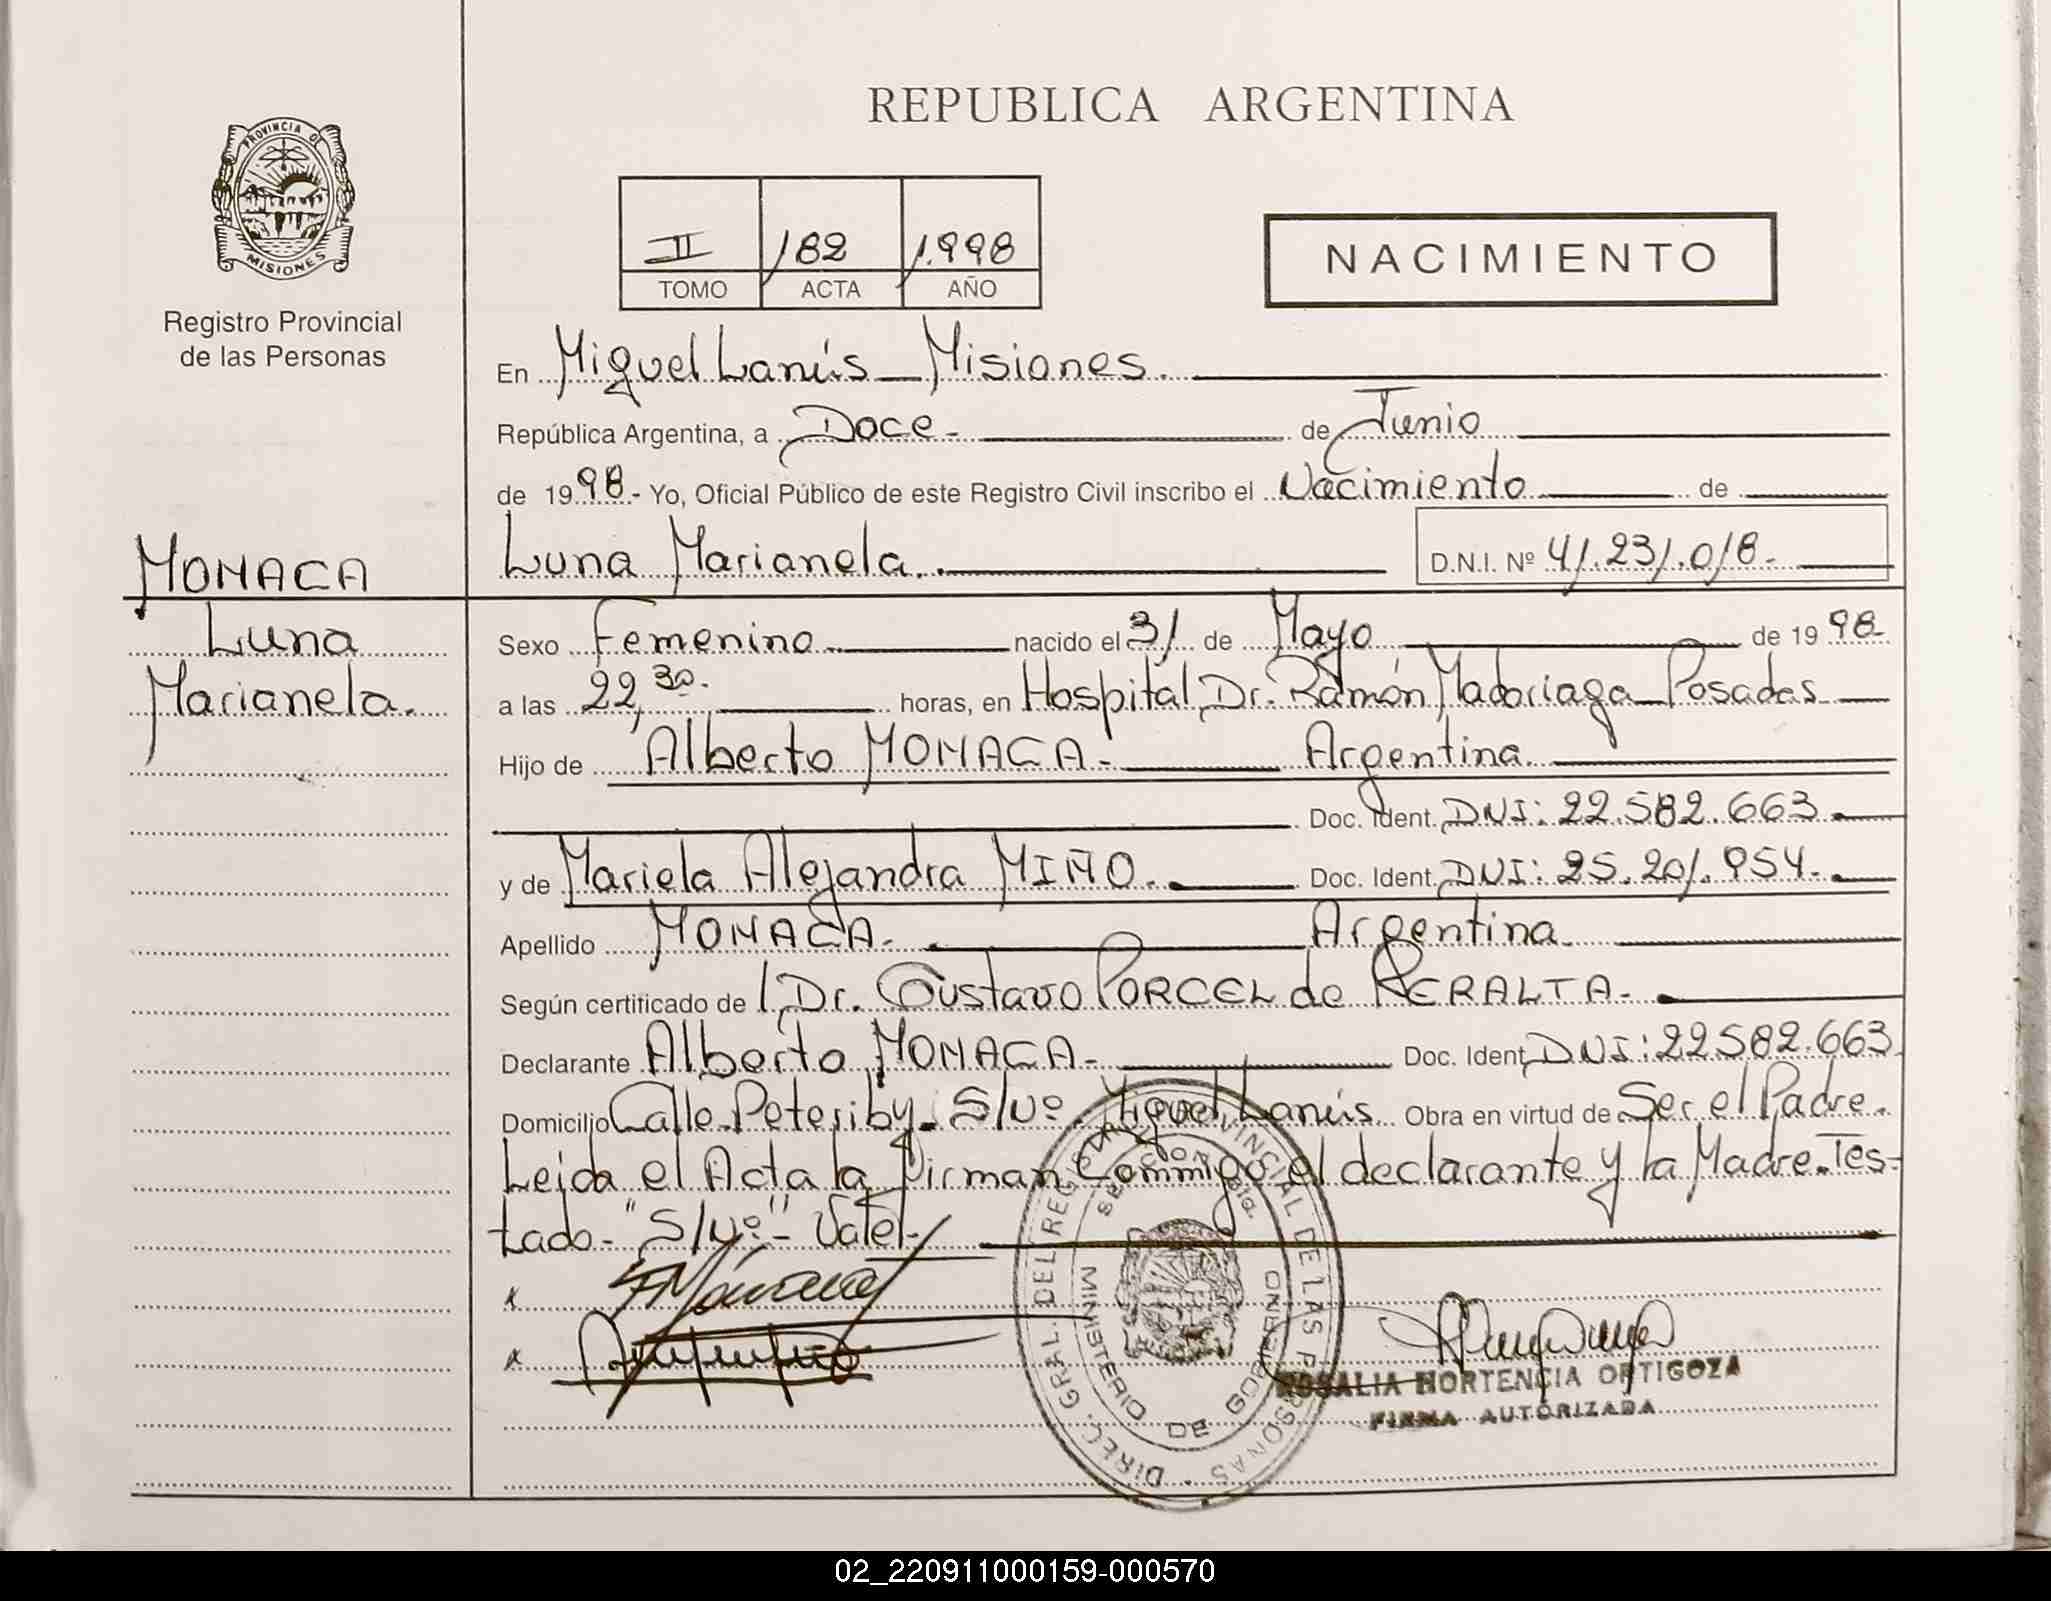 REPUBLICA ARGENTINA
PROVINCIA DE
MISIONES
Registro Provincial
de las Personas
II 182 1.998
TOMO ACTA AÑO
NACIMIENTO
En Miguel Lanús - Misiones.
República Argentina, a Doce - de Junio
de 1998.- Yo, Oficial Público de este Registro Civil inscribo el Nacimiento de
Luna Marianela. D.N.I. Nº 41.231.018.-
MONACA
Luna
Marianela.
Sexo Femenino nacido el 31 de Mayo de 1998-
a las 22,30. horas, en Hospital Dr. Ramón Madariaga - Posadas
Hijo de Alberto MONACA.- Argentina.
Doc. Ident. DNI: 22.582.663
y de Mariela Alejandra MIÑO. Doc. Ident. DNI: 25.201.954.
Apellido MONACA.- Argentina.
Según certificado de l Dr. Gustavo PORCEL de PERALTA.
Declarante Alberto MONACA.- Doc. Ident. DNI: 22582.663
Domicilio Calle Peteriby S/Nº Miguel Lanús Obra en virtud de Ser el Padre.
Leida el Acta la Firman Commigo el declarante y la Madre. Tes-
tado- "S/Nº"- Vale.-
x
x
DIREC. GRAL. DEL REGISTRO PROVINCIAL DE LAS PERSONAS
MINISTERIO DE GOBIERNO
ROSALIA HORTENCIA ORTIGOZA
FIRMA AUTORIZADA
02_220911000159-000570